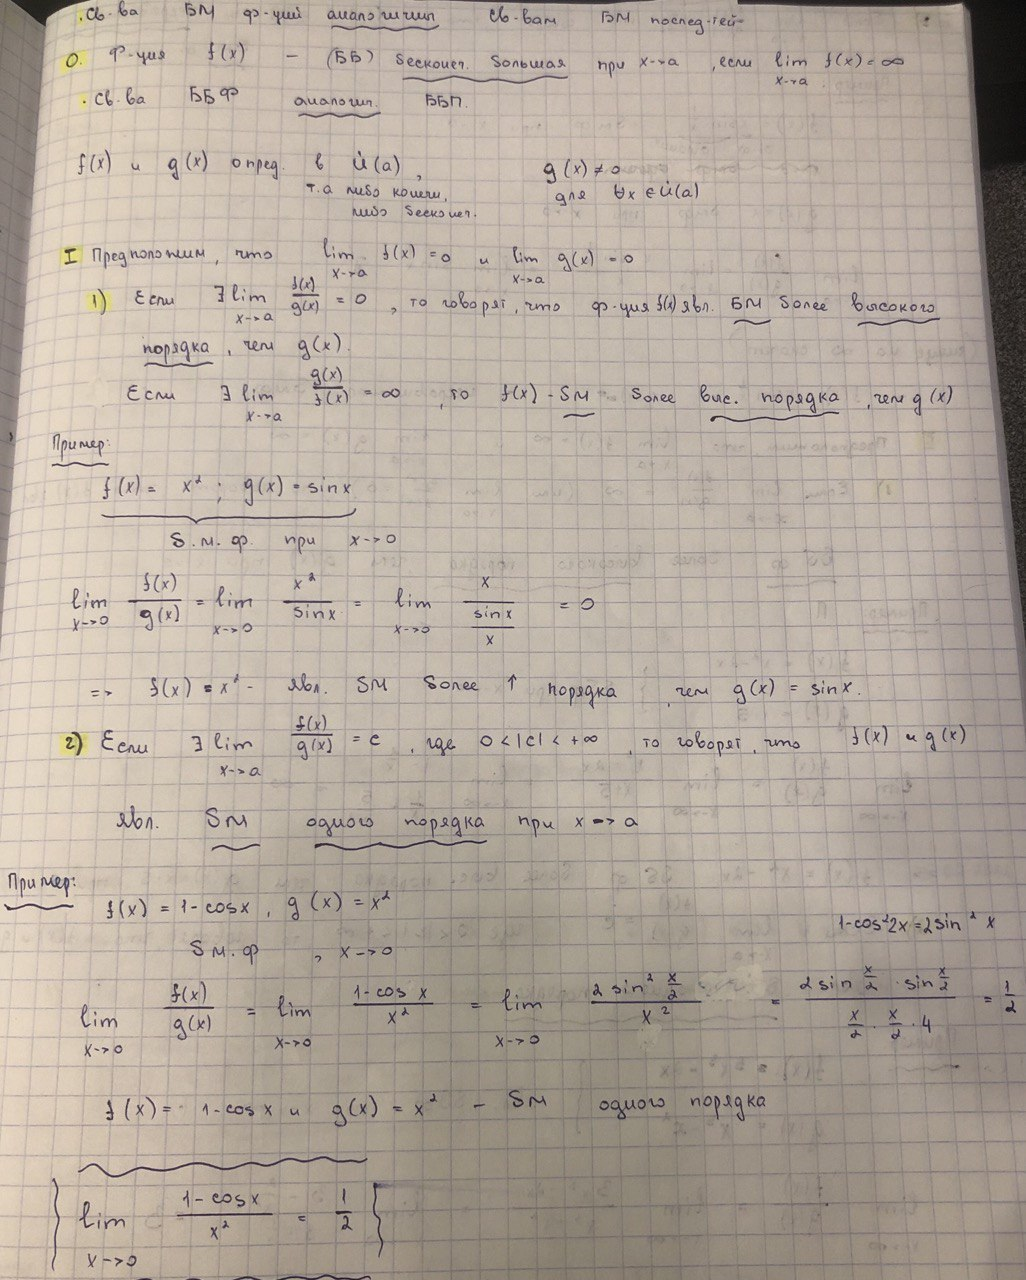 . Св-ва БМ ф-ций аналогичн св-вам БМ послед-тей
О. Ф-ция f(x) – (ББ) бесконеч. большая при x→a, если lim f(x) = ∞
x→a
. Св-ва ББФ аналогич. ББП.
f(x) и g(x) опред. в U̇(a), g(x) ≠ 0
т.а либо конечн, для ∀x ∈ U̇(a)
либо бесконеч.
I Предположим, что lim f(x) = 0 и lim g(x) = 0
x→a x→a
1) Если ∃ lim f(x)/g(x) = 0, то говорят, что ф-ция f(x) явл. БМ более высокого
x→a
порядка, чем g(x).
Если ∃ lim g(x)/f(x) = ∞, то f(x) - бм более выс. порядка, чем g(x)
x→a
Пример:
f(x) = x²; g(x) = sinx
б.м.ф. при x→0
lim f(x)/g(x) = lim x²/sinx = lim x/(sinx/x) = 0
x→0 x→0 x→0
=> f(x) = x² - явл. бм более ↑ порядка, чем g(x) = sinx.
2) Если ∃ lim f(x)/g(x) = c, где 0 < |c| < +∞, то говорят, что f(x) и g(x)
x→a
явл. бм одного порядка при x → a
Пример:
f(x) = 1-cosx, g(x) = x²
1-cos²2x = 2sin² x
б.м.ф, x→0
lim f(x)/g(x) = lim (1-cos x)/x² = lim (2 sin² x/2)/x² = (2 sin x/2 · sin x/2)/(x/2 · x/2 · 4) = 1/2
x→0 x→0 x→0
f(x) = 1-cosx и g(x) = x² – бм одного порядка
lim (1-cosx)/x² = 1/2
x→0